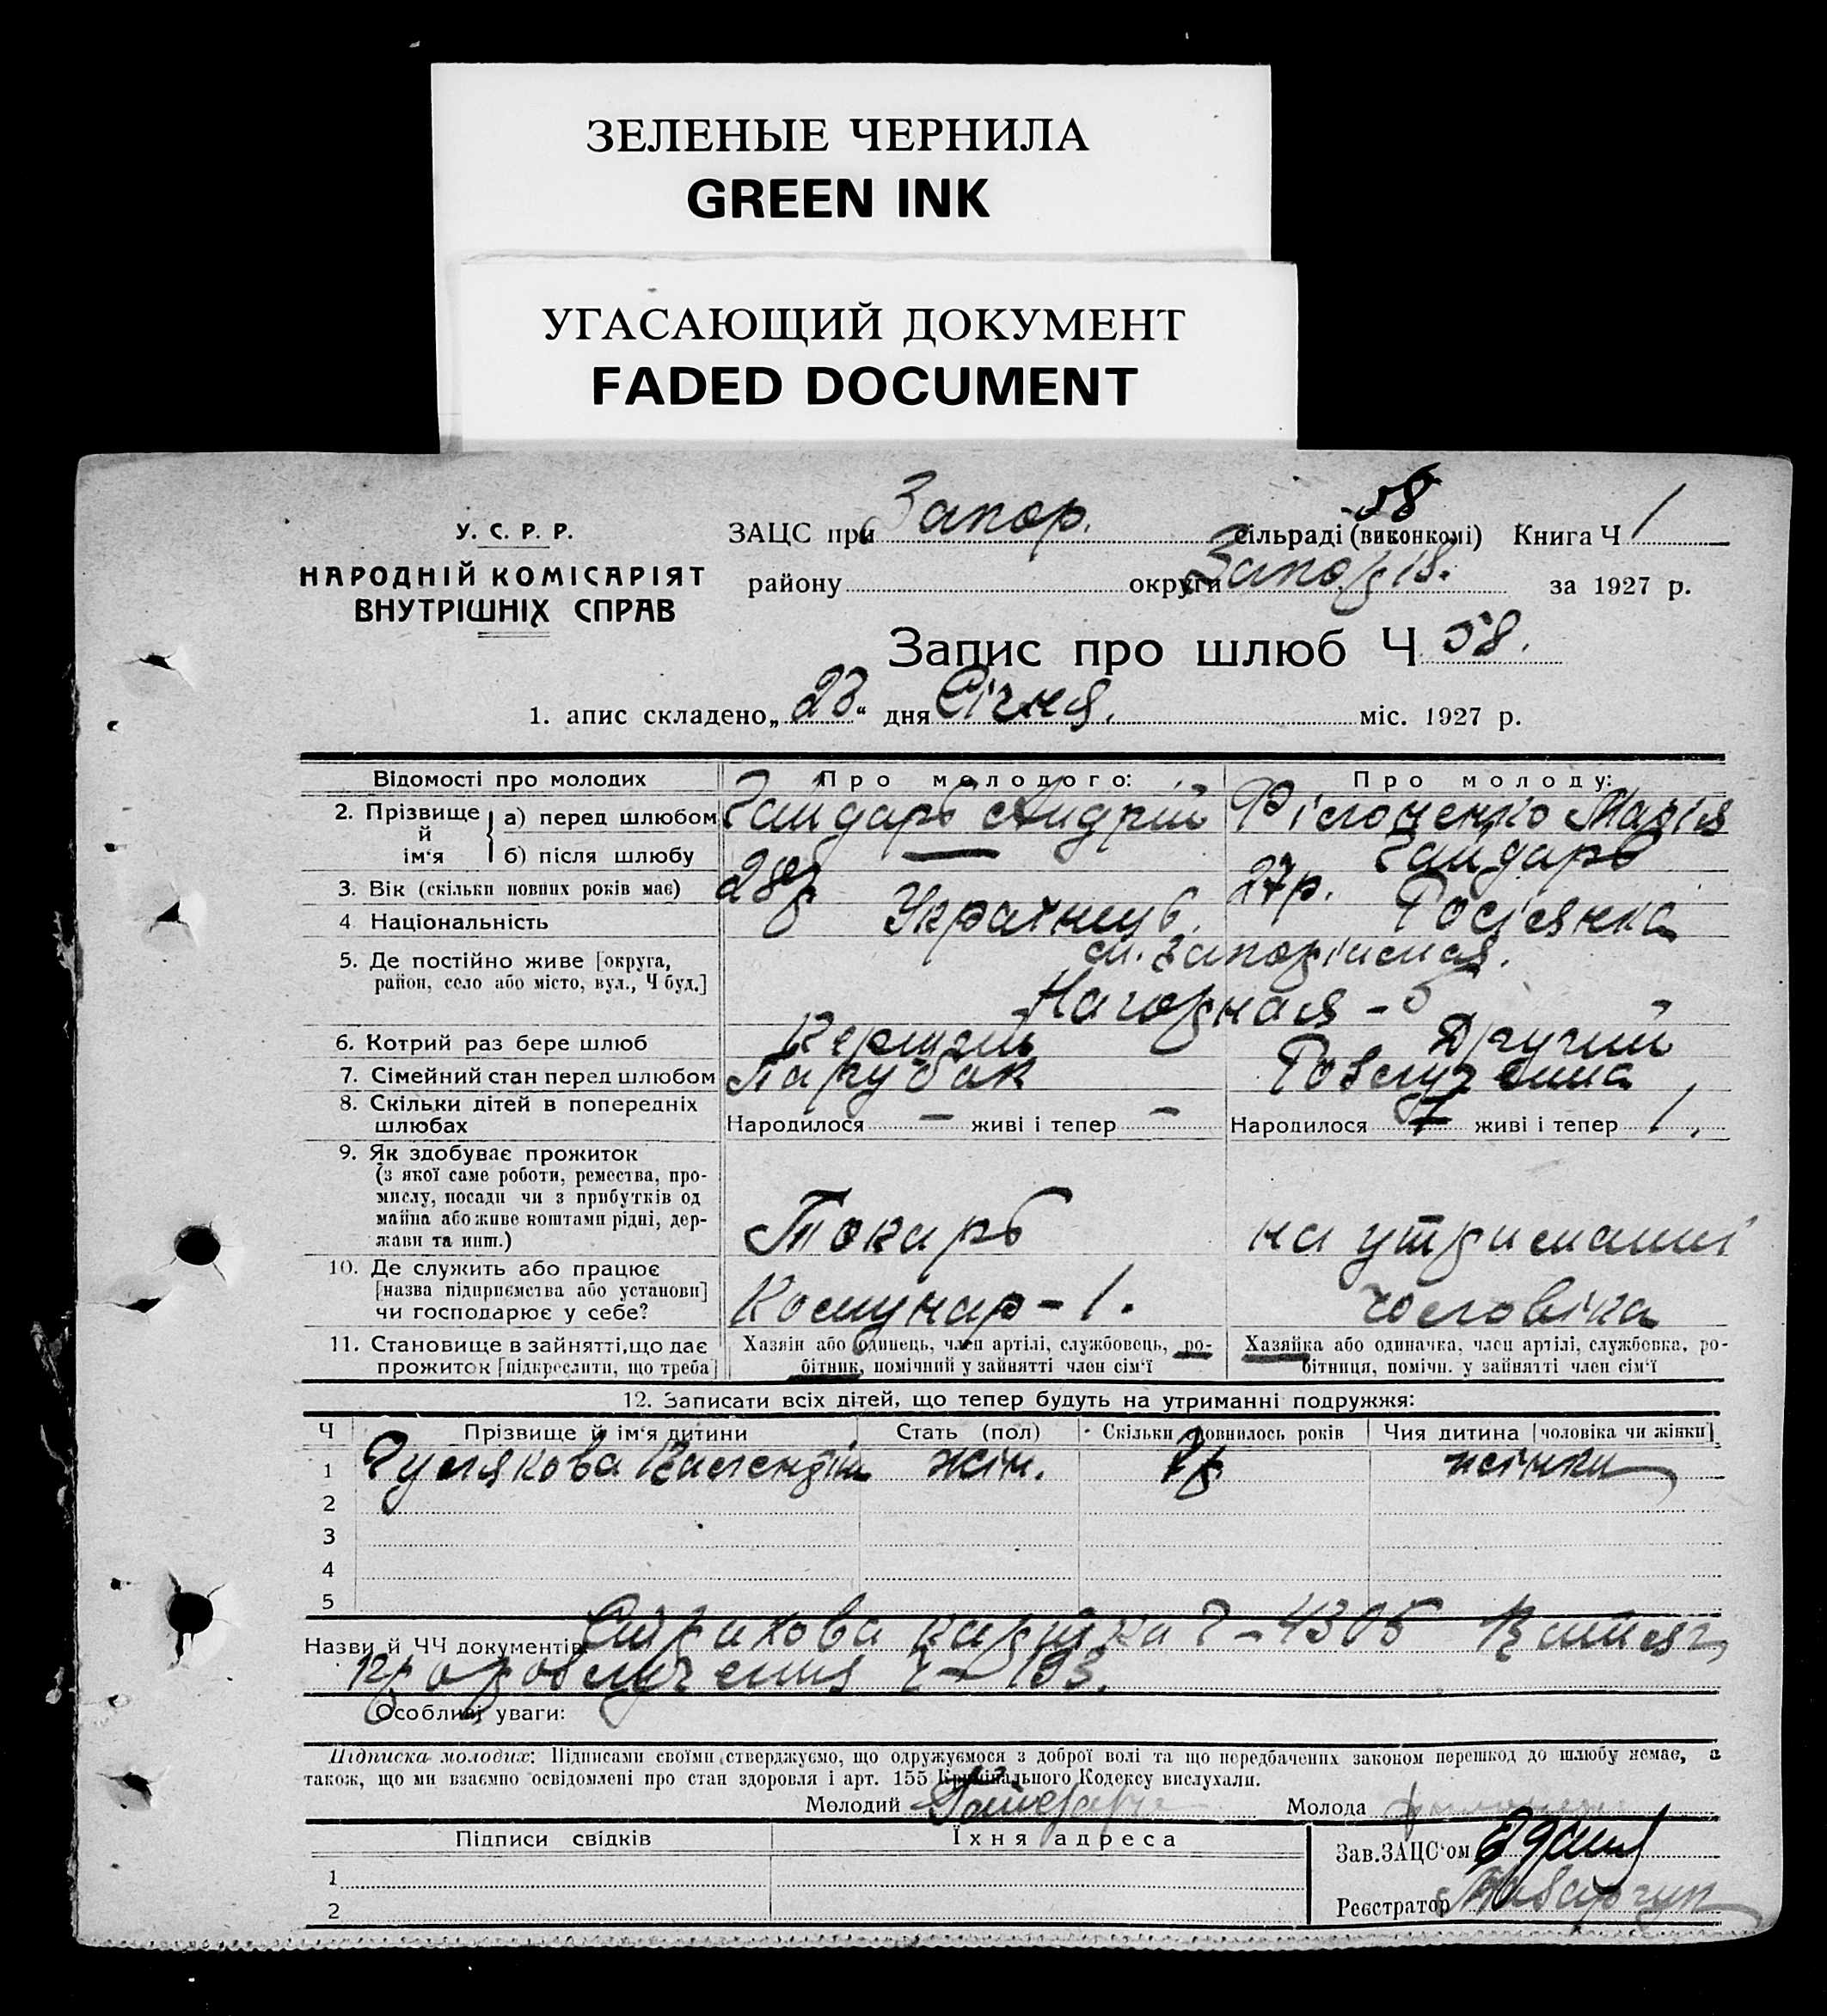 ЗЕЛЕНЫЕ ЧЕРНИЛА
GREEN INK
УГАСАЮЩИЙ ДОКУМЕНТ
FADED DOCUMENT
У. С. Р. Р.
НАРОДНІЙ КОМІСАРІЯТ
ВНУТРІШНІХ СПРАВ
58
ЗАЦС при Запор. сільраді (виконкомі) Книга Ч 1
району округи за 1927 р.
Запис про шлюб Ч 58.
1. апис складено „23“ дня Січня. міс. 1927 р.
Відомості про молодих Про молодого: Про молоду:
2. Прізвище й ім‘я а) перед шлюбом Гайдарь Андрій Філоненко Марія
б) після шлюбу — Гайдарь
3. Вік (скільки повних років має) 28р. 27р.
4 Національність Українець. Росіянка
5. Де постійно живе [округа, район, село або місто, вул., Ч буд.] м. Запоріжжя.
Нагорная - 5
6. Котрий раз бере шлюб Перший Другий
7. Сімейний стан перед шлюбом Парубок Розлучена
8. Скільки дітей в попередніх шлюбах Народилося — живі і тепер — Народилося 1 живі і тепер 1.
9. Як здобуває прожиток
(з якої саме роботи, ремества, про-
мислу, посади чи з прибутків од
майна або живе коштами рідні, дер-
жави та инш.) Токарь на утриманні
10. Де служить або працює
[назва підприємства або установи]
чи господарює у себе? Комунар - 1. чоловіка
11. Становище в зайнятті, що дає прожиток [підкреслити, що треба] Хазяїн або одинець, член артілі, службовець, ро-бітник, помічний у зайнятті член сім‘ї Хазяйка або одиначка, член артілі, службовка, ро-бітниця, помічн. у зайнятті член сім‘ї
12. Записати всіх дітей, що тепер будуть на утриманні подружжя:
Ч Прізвище й ім‘я дитини Стать (пол) Скільки сповнилось років Чия дитина [чоловіка чи жінки]
1 жін. жінки
2
3
4
5
Назви й ЧЧ документів: картка Ч - 4305 Витяг
про розлучення Ч - 193.
Особливі уваги:
Підписка молодих: Підписами своїми стверджуємо, що одружуємося з доброї волі та що передбачених законом перешкод до шлюбу немає, а
також, що ми взаємно освідомлені про стан здоровля і арт. 155 Кримінального Кодексу вислухали.
Молодий Гайдарь Молода
Підписи свідків Їхня адреса Зав.ЗАЦС‘ом
1
2 Реєстратор